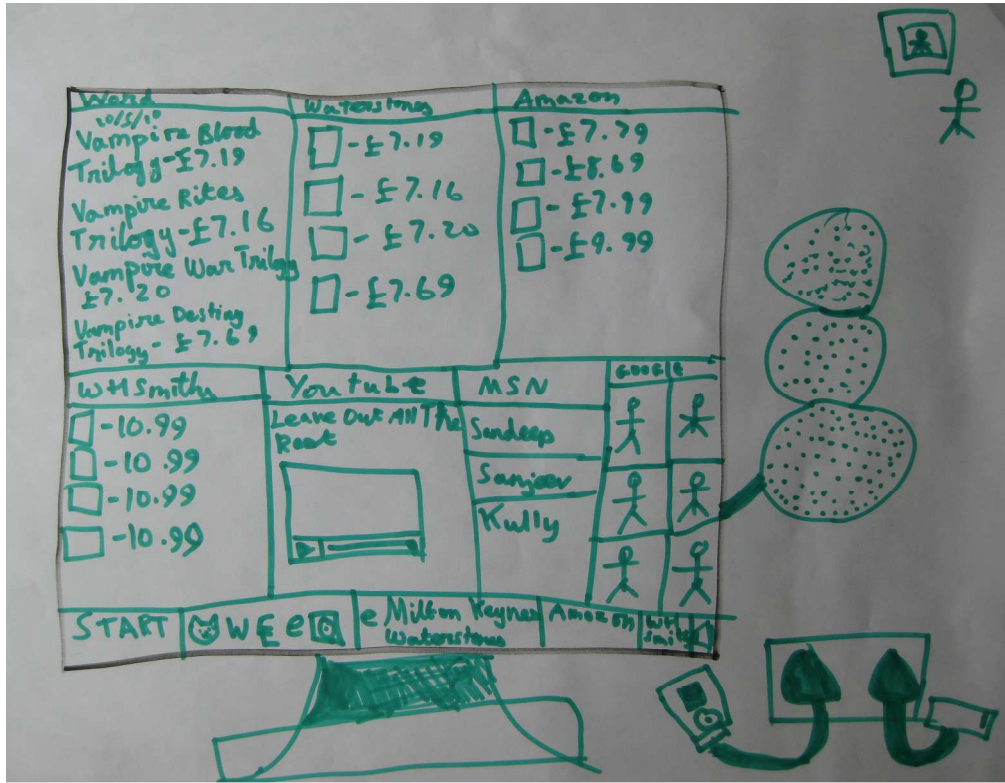 Word
10/5/10
Vampire Blood
Trilogy-£7.19
Vampire Rites
Trilogy-£7.16
Vampire War Trilogy
£7.20
Vampire Destiny
Trilogy-£7.69
Waterstones
-£7.19
-£7.16
-£7.20
-£7.69
Amazon
-£7.79
-£8.69
-£7.99
-£9.99
WHSmiths
-10.99
-10.99
-10.99
-10.99
Youtube
Leave Out All The
Rest
MSN
Sandeep
Sanjeev
Kully
GOOGLE
START
W E e
e Milton Keynes
Waterstones
Amazon
WH
Smiths